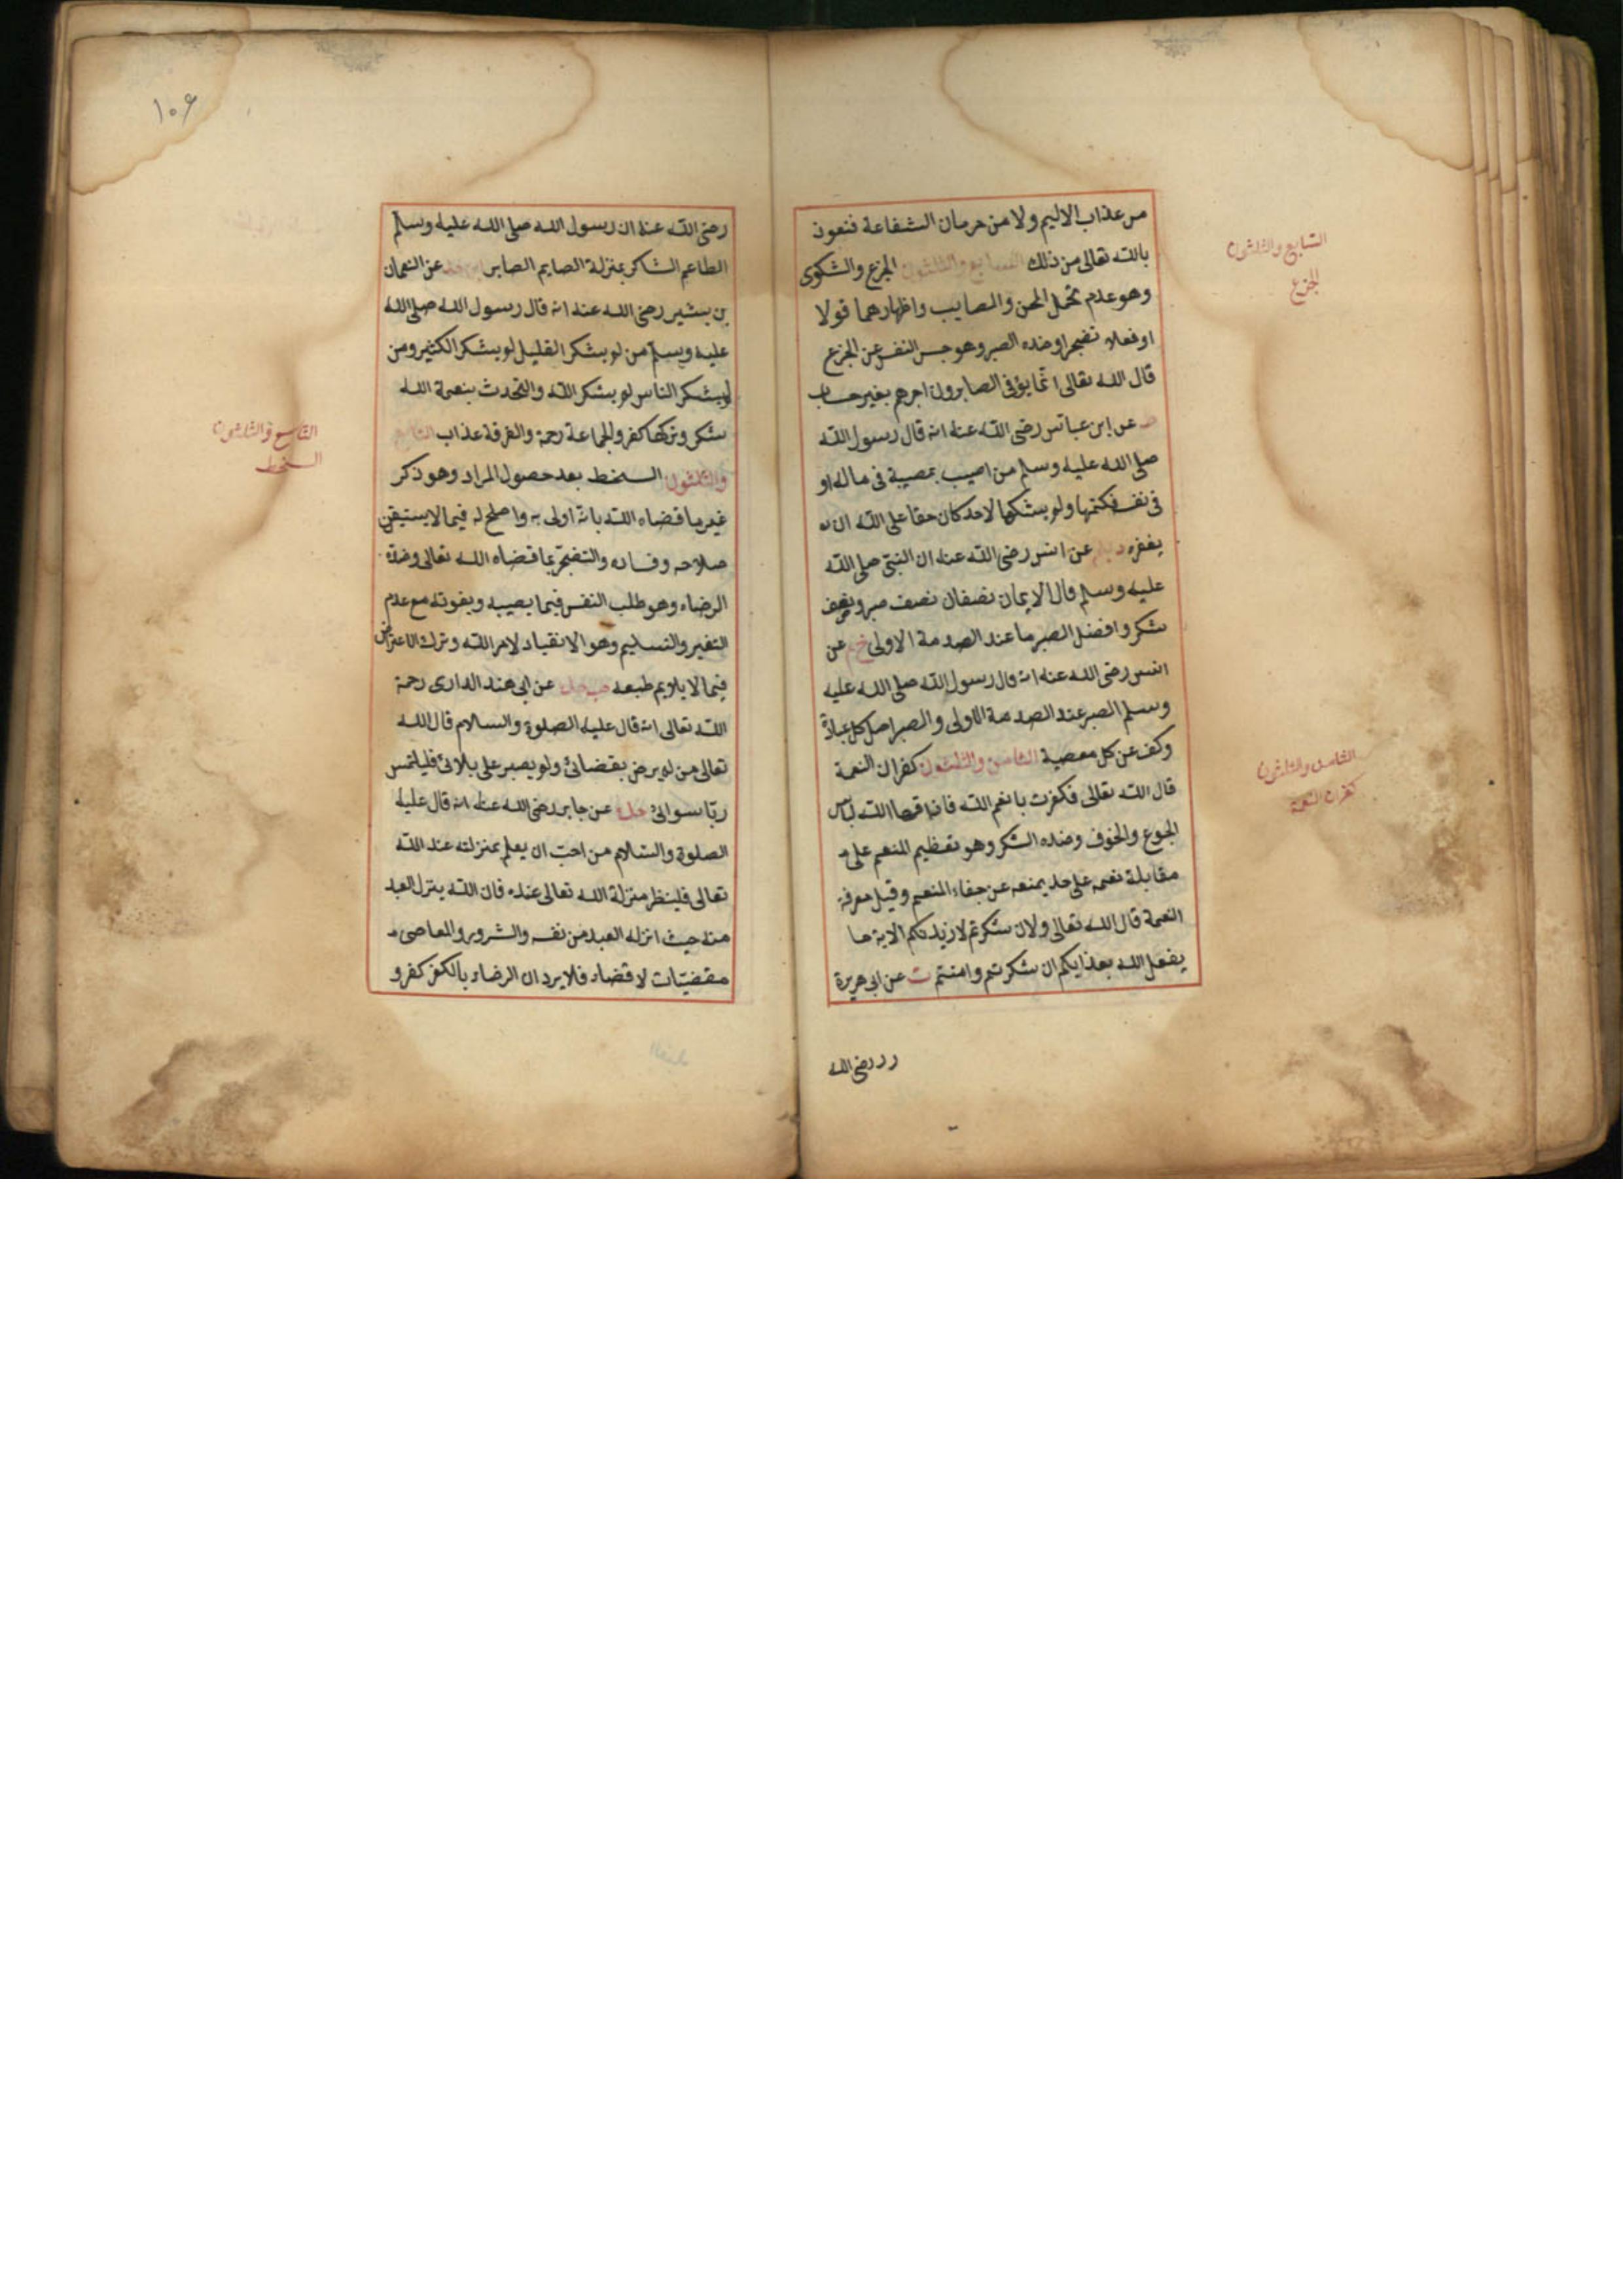 من عذاب الاليم ولا من حرمان الشفاعة فنعوذ
بالله تعالى من ذلك السابع والثلثون الجزع والشكوى
وهو عدم تحمل المحن والمصايب واظهارهما قولا
او فعلا تضجرا وضده الصبر وهو حبس النفس عن الجزع
قال الله تعالى انما يوفى الصابرون اجرهم بغير حساب
عن ابن عباس رضى الله عنه انه قال رسول الله
صلى الله عليه وسلم من اصيب بمصيبة فى ماله او
فى نفسه فكتمها ولم يشكها لاحد كان حقا على الله ان
يغفره عن انس رضى الله عنه ان النبى صلى الله
عليه وسلم قال الايمان نصفان نصف صبر ونصف
شكر وافضل الصبر ما عند الصدمة الاولى خ م عن
انس رضى الله عنه انه قال رسول الله صلى الله عليه
وسلم الصبر عند الصدمة الاولى والصبر اصل كل عبادة
وكف عن كل معصية الثامن والثلثون كفران النعمة
قال الله تعالى فكفرت بانعم الله فاذاقها الله لباس
الجوع والخوف وضده الشكر وهو تعظيم المنعم على
مقابلة نعمه على حد يمنعه عن جفاء المنعم وقيل معرفة
النعمة قال الله تعالى ولان شكرتم لازيدنكم الاية ما
يفعل الله بعذابكم ان شكرتم وامنتم ت عن ابى هريرة
رضى الله
السابع والثلثون
الجزع
الثامن والثلثون
كفران النعمة
١٠٦
رضى الله عنه ان رسول الله صلى الله عليه وسلم
الطاعم الشاكر بمنزلة الصايم الصابر عن النعمان
بن بشير رضى الله عنه انه قال رسول الله صلى الله
عليه وسلم من لم يشكر القليل لم يشكر الكثير ومن
لم يشكر الناس لم يشكر الله والتحدث بنعمة الله
شكر وتركها كفر والجماعة رحمة والفرقة عذاب التاسع
والثلثون السخط بعد حصول المراد وهو ذكر
غير ما قضاه الله بانه اولى به واصلح له فيما لا يستيقن
صلاحه وفساده والتضجر بما قضاه الله تعالى وضده
الرضاء وهو طلب النفس فيما يصيبه ويفوته مع عدم
التغير والتسليم وهو الانقياد لامر الله وترك الاعتراض
فيما لا يلايم طبعه حب عن ابى هند الدارى رحمة
الله تعالى انه قال عليه الصلوة والسلام قال الله
تعالى من لم يرض بقضائى ولم يصبر على بلائى فليلتمس
ربا سوائى عن جابر رضى الله عنه انه قال عليه
الصلوة والسلام من احب ان يعلم بمنزلته عند الله
تعالى فلينظر منزلة الله تعالى عنده فان الله ينزل العبد
منه حيث انزله العبد من نفسه والشرور والمعاصى
مقضيات لا قضاء فلا يرد ان الرضاء بالكفر كفر و
التاسع والثلثون
السخط